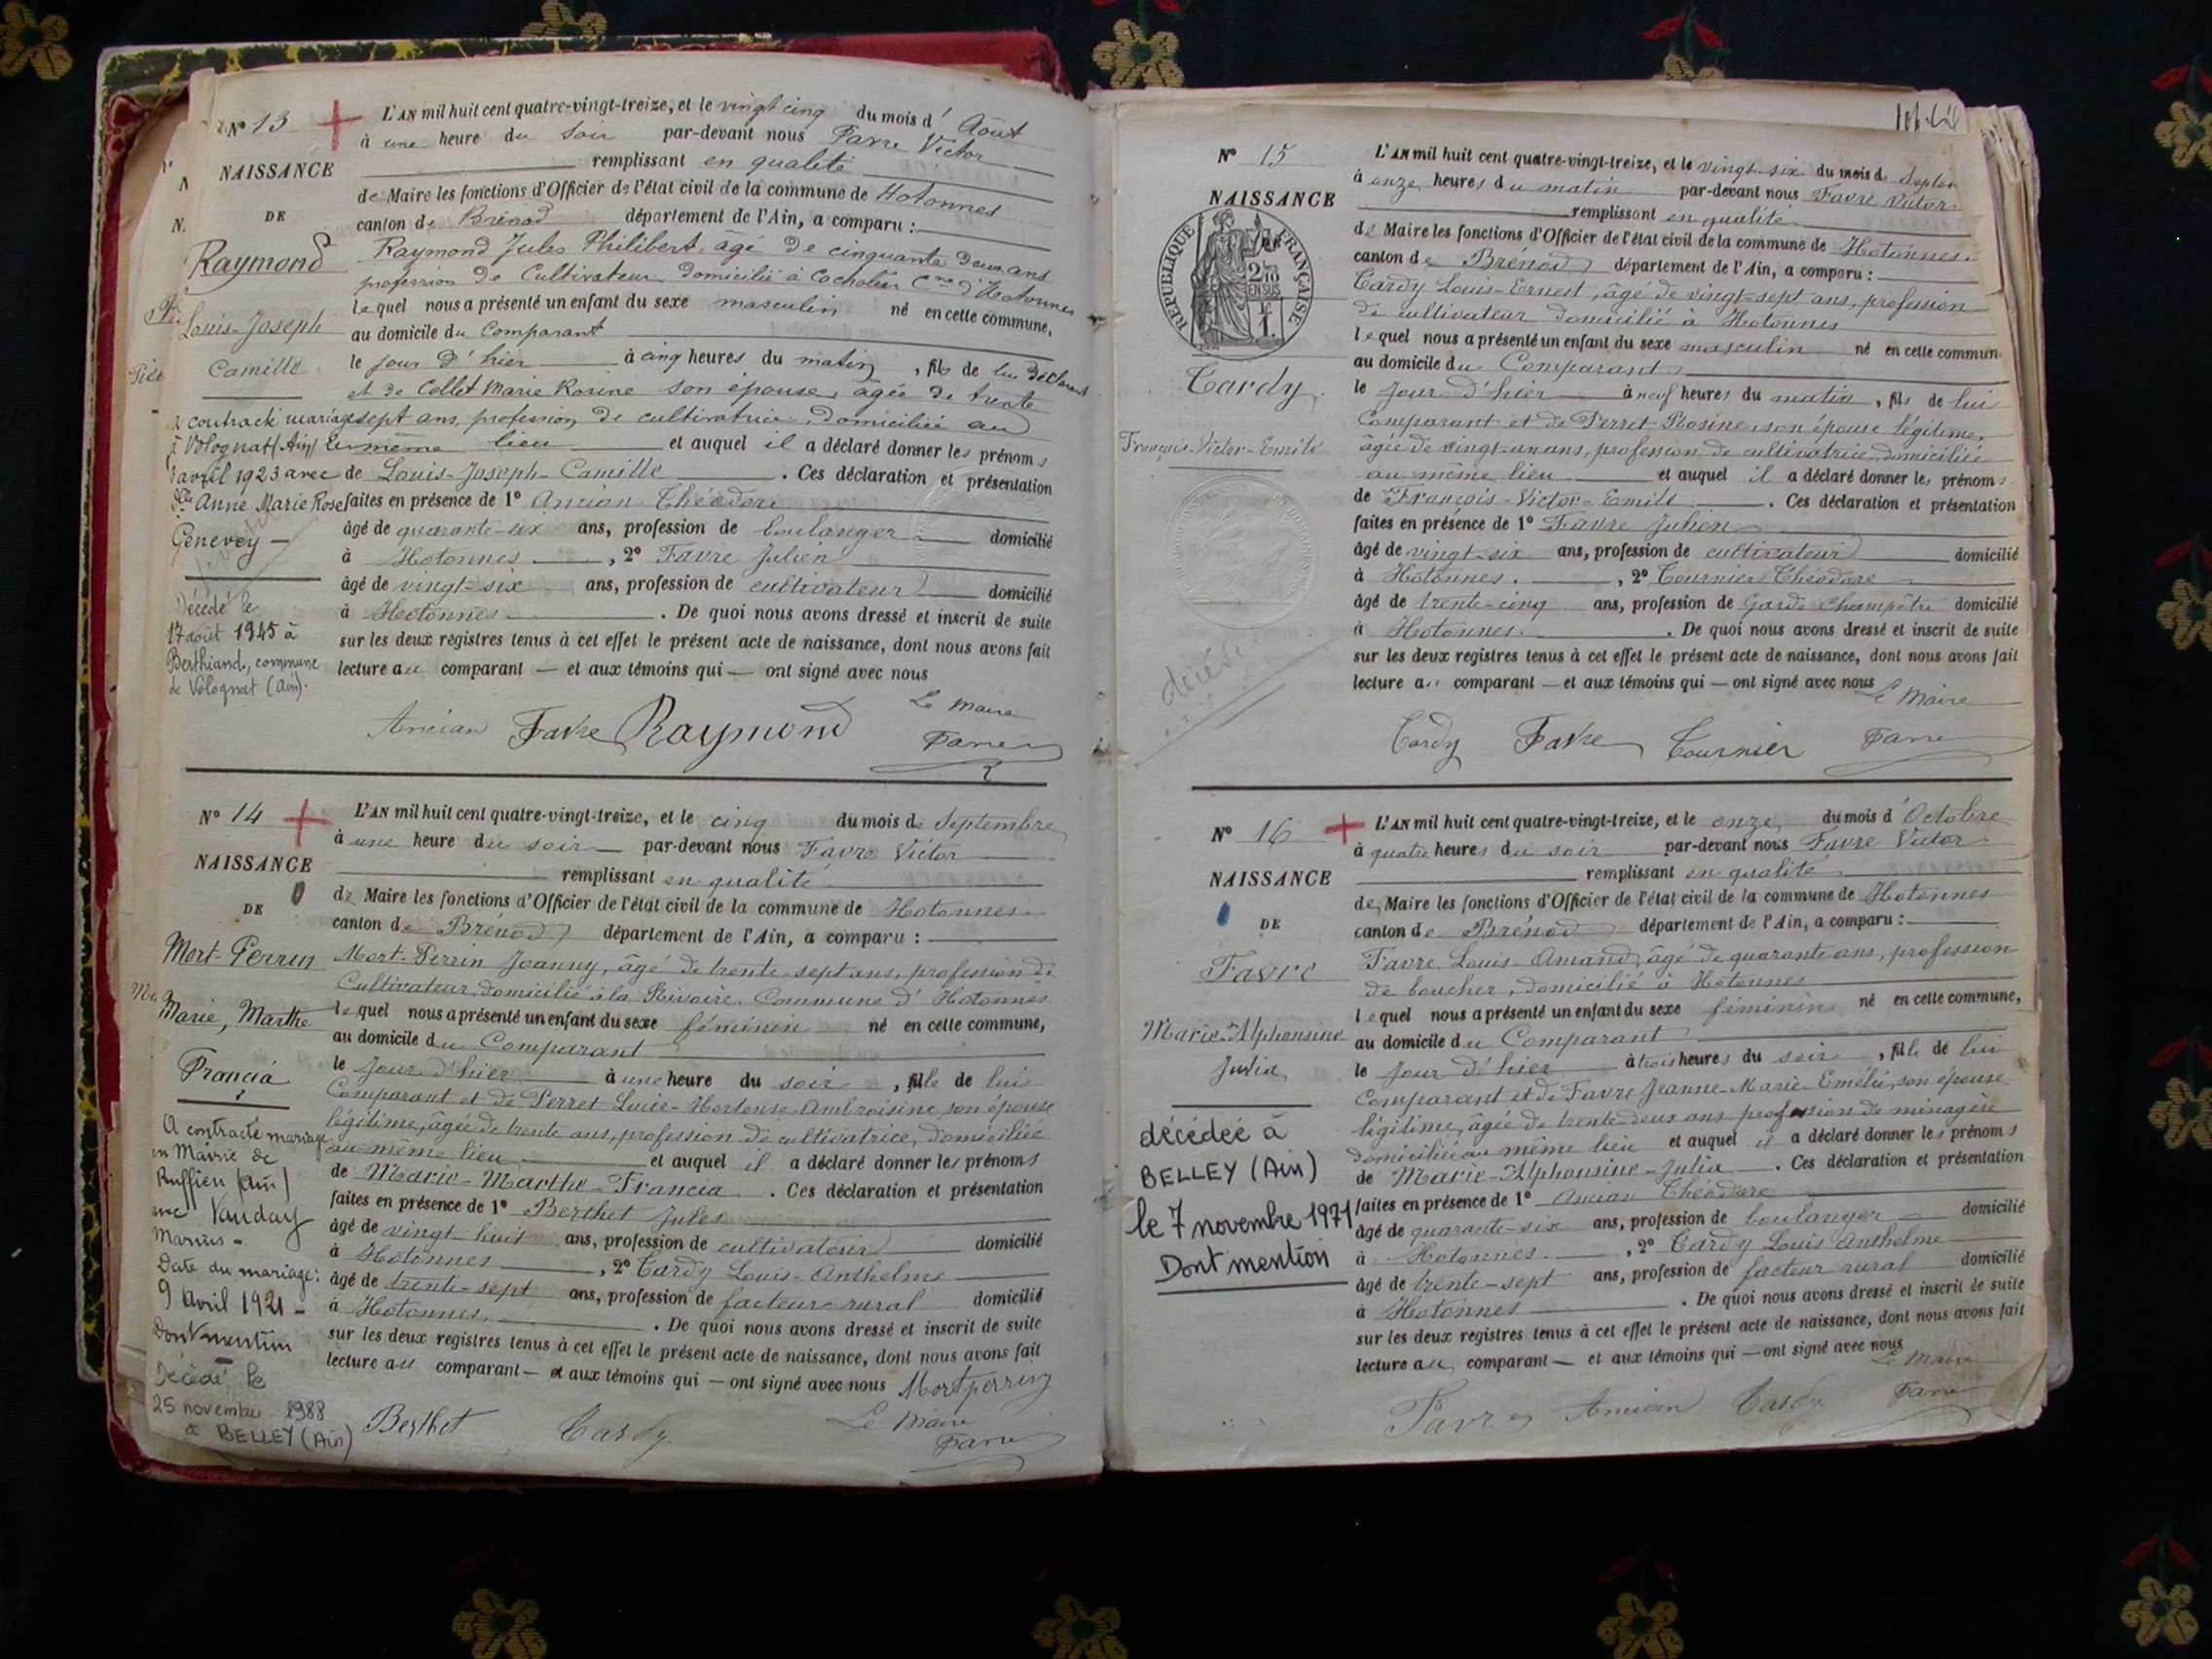 N° 13
NAISSANCE
DE
Raymond
Louis-Joseph
Camille
a contracté mariage
à Volognat (Ain) le
avril 1923 avec
Anne Marie Rose
Genevey —
Décédé le
17 août 1945 à
Berthiand, commune
de Volognat (Ain).
L'AN mil huit cent quatre-vingt-treize, et le vingt cinq du mois d' Août
à une heure du soir par-devant nous Favre Victor
remplissant en qualité
de Maire les fonctions d'Officier de l'état civil de la commune de Hotonnes
canton de Brénod département de l'Ain, a comparu :
Raymond Jules Philibert, âgé de cinquante deux ans
profession de Cultivateur domicilié à Cocholier Cne d'Hotonnes
lequel nous a présenté un enfant du sexe masculin né en cette commune,
au domicile du Comparant
le jour d'hier à cinq heures du matin, fils de lui déclarant
et de Collet Marie Rosine son épouse, âgée de trente
sept ans, profession de cultivatrice, domiciliée au
même lieu et auquel il a déclaré donner les prénoms
de Louis-Joseph-Camille. Ces déclaration et présentation
faites en présence de 1° Ancian Théodore
âgé de quarante-six ans, profession de boulanger domicilié
à Hotonnes, 2° Favre Julien
âgé de vingt-six ans, profession de cultivateur domicilié
à Hotonnes. De quoi nous avons dressé et inscrit de suite
sur les deux registres tenus à cet effet le présent acte de naissance, dont nous avons fait
lecture au comparant — et aux témoins qui — ont signé avec nous
Le Maire
Ancian Favre Raymond Favre
N° 14
NAISSANCE
DE
Mort-Perrin
Marie, Marthe
Francia
A contracté mariage
en Mairie de
Ruffieu (Ain)
avec Vauday
Marius -
Date du mariage :
9 Avril 1921 -
Dont mention
Décédé le
25 novembre 1988
à BELLEY (Ain)
L'AN mil huit cent quatre-vingt-treize, et le cinq du mois de Septembre
à une heure du soir — par-devant nous Favre Victor
remplissant en qualité
de Maire les fonctions d'Officier de l'état civil de la commune de Hotonnes
canton de Brénod département de l'Ain, a comparu :
Mort-Perrin Joanny, âgé de trente-sept ans, profession de
Cultivateur, domicilié à la Rivoire. Commune d'Hotonnes
lequel nous a présenté un enfant du sexe féminin né en cette commune,
au domicile du Comparant
le jour d'hier à une heure du soir, fille de lui
Comparant et de Perret Lucie-Hortense-Ambroisine son épouse
légitime, âgée de trente ans, profession de cultivatrice, domiciliée
au même lieu et auquel il a déclaré donner les prénoms
de Marie-Marthe-Francia. Ces déclaration et présentation
faites en présence de 1° Berthet Jules
âgé de vingt huit ans, profession de cultivateur domicilié
à Hotonnes, 2° Tardy Louis-Anthelme
âgé de trente-sept ans, profession de facteur rural domicilié
à Hotonnes. De quoi nous avons dressé et inscrit de suite
sur les deux registres tenus à cet effet le présent acte de naissance, dont nous avons fait
lecture au comparant — et aux témoins qui — ont signé avec nous Mortperrin
Berthet Tardy Le Maire
Favre
N° 15
NAISSANCE
DE
RÉPUBLIQUE FRANÇAISE
2/10 EN SUS
1 F.
Tardy
François-Victor-Emile
décédé
L'AN mil huit cent quatre-vingt-treize, et le vingt-six du mois de Septem
à onze heures du matin par-devant nous Favre Victor
remplissant en qualité
de Maire les fonctions d'Officier de l'état civil de la commune de Hotonnes
canton de Brénod département de l'Ain, a comparu :
Tardy Louis-Ernest, âgé de vingt-sept ans, profession
de cultivateur domicilié à Hotonnes
lequel nous a présenté un enfant du sexe masculin né en cette commun
au domicile du Comparant
le jour d'hier à neuf heures du matin, fils de lui
Comparant et de Perret Rosine, son épouse légitime,
âgée de vingt-un ans, profession de cultivatrice, domiciliée
au même lieu et auquel il a déclaré donner les prénoms
de François-Victor-Emile. Ces déclaration et présentation
faites en présence de 1° Favre Julien
âgé de vingt-six ans, profession de cultivateur domicilié
à Hotonnes, 2° Tournier Théodore
âgé de trente-cinq ans, profession de Garde Champêtre domicilié
à Hotonnes. De quoi nous avons dressé et inscrit de suite
sur les deux registres tenus à cet effet le présent acte de naissance, dont nous avons fait
lecture au comparant — et aux témoins qui — ont signé avec nous
Le Maire
Tardy Favre Tournier Favre
N° 16
NAISSANCE
DE
Favre
Marie-Alphonsine
Julia
décédée à
BELLEY (Ain)
le 7 novembre 1971
Dont mention
L'AN mil huit cent quatre-vingt-treize, et le onze du mois d'Octobre
à quatre heures du soir par-devant nous Favre Victor
remplissant en qualité
de Maire les fonctions d'Officier de l'état civil de la commune de Hotonnes
canton de Brénod département de l'Ain, a comparu :
Favre Louis-Amand, âgé de quarante ans, profession
de boucher, domicilié à Hotonnes
lequel nous a présenté un enfant du sexe féminin né en cette commune,
au domicile du Comparant
le jour d'hier à trois heures du soir, fille de lui
Comparant et de Favre Jeanne-Marie-Emélie, son épouse
légitime, âgée de trente-deux ans profession de ménagère
domiciliée au même lieu et auquel il a déclaré donner les prénoms
de Marie-Alphonsine-Julia. Ces déclaration et présentation
faites en présence de 1° Ancian Théodore
âgé de quarante-six ans, profession de boulanger domicilié
à Hotonnes, 2° Tardy Louis Anthelme
âgé de trente-sept ans, profession de facteur rural domicilié
à Hotonnes. De quoi nous avons dressé et inscrit de suite
sur les deux registres tenus à cet effet le présent acte de naissance, dont nous avons fait
lecture au comparant — et aux témoins qui — ont signé avec nous
Le Maire
Favre Ancian Tardy Favre